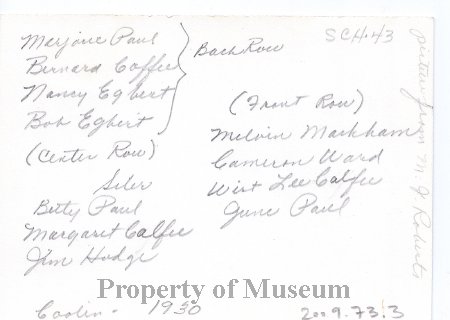 SCH43
Marjorie Paul
Bernard Coffee
Nancy Egbert
Bob Egbert
Back Row
(Center Row)
Siler
Betty Paul
Margaret Calfee
Jim Hodge
(Front Row)
Melvin Markham
Cameron Ward
Wirt Lee Calfee
June Paul
picture from M. J. Roberts
Property of Museum
Coolin - 1930
2009.73.3